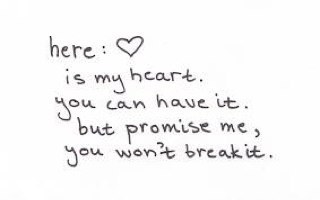 here: ♡
is my heart.
you can have it.
but promise me,
you won't break it.